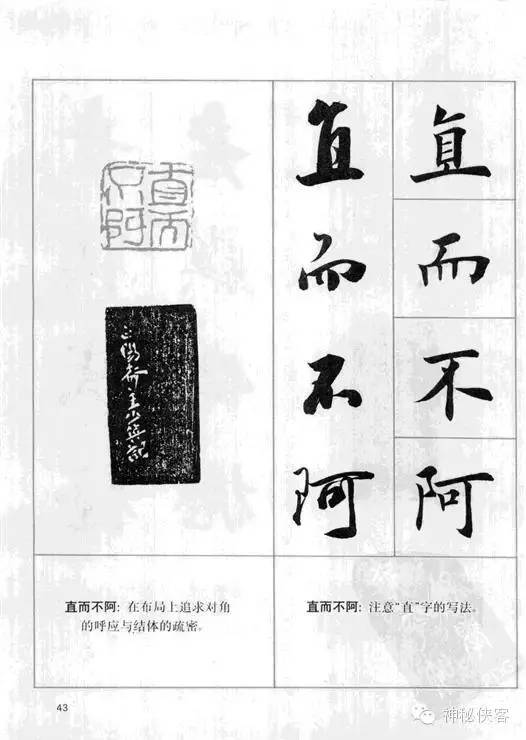 直而不阿
直而不阿
直而不阿
直而不阿: 在布局上追求对角
的呼应与结体的疏密。
直而不阿: 注意“直”字的写法。
43
神秘侠客